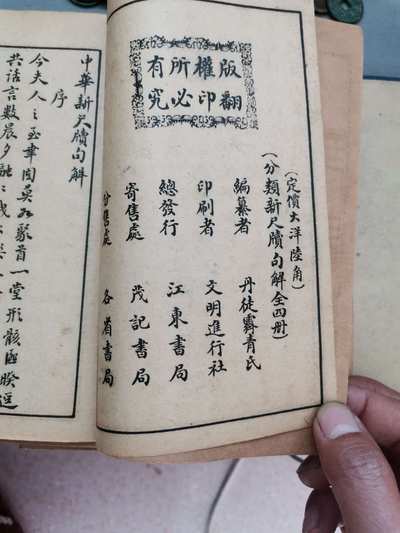 版權所有
翻印必究
(定價大洋陸角)
(分類新尺牘句解全四冊)
編纂者 丹徒霽青氏
印刷者 文明進行社
總發行 江東書局
寄售處 茂記書局
分售處 各省書局
中華新尺牘句解
序
今夫人之至莫如聚首一堂形骸
共話言數晨夕融